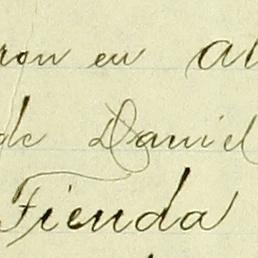 ron en al
de Daniel
Fienda